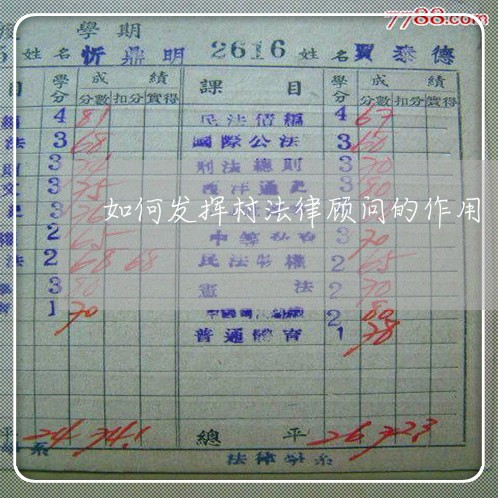 7788.com
學期
姓名 忻鼎明 2616 姓名 賈泰德
目 學分 成績 課目 學分 成績
分數 扣分 實得 分數 扣分 實得
4 81 民法債編 4 67
法 3 68 國際公法 3 60
3 刑法總則 3 70
3 75 西洋通史 3 80
如何发挥村法律顾问的作用
2 65 3 70
法 2 68 68 民法物權 2 65
3 80 憲法 2 70
1 70 2 80
普通體育 1 78
平 24 74.1 總平 26 72.3
系 法律學系